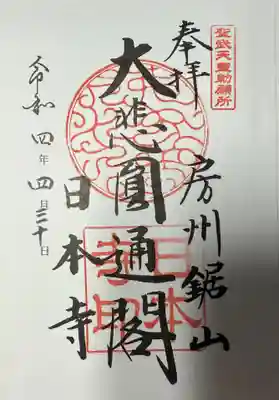 聖武天皇勅願所
奉拝
房州鋸山
大悲圓通閣
日本寺
令和四年四月三十日
日本寺印